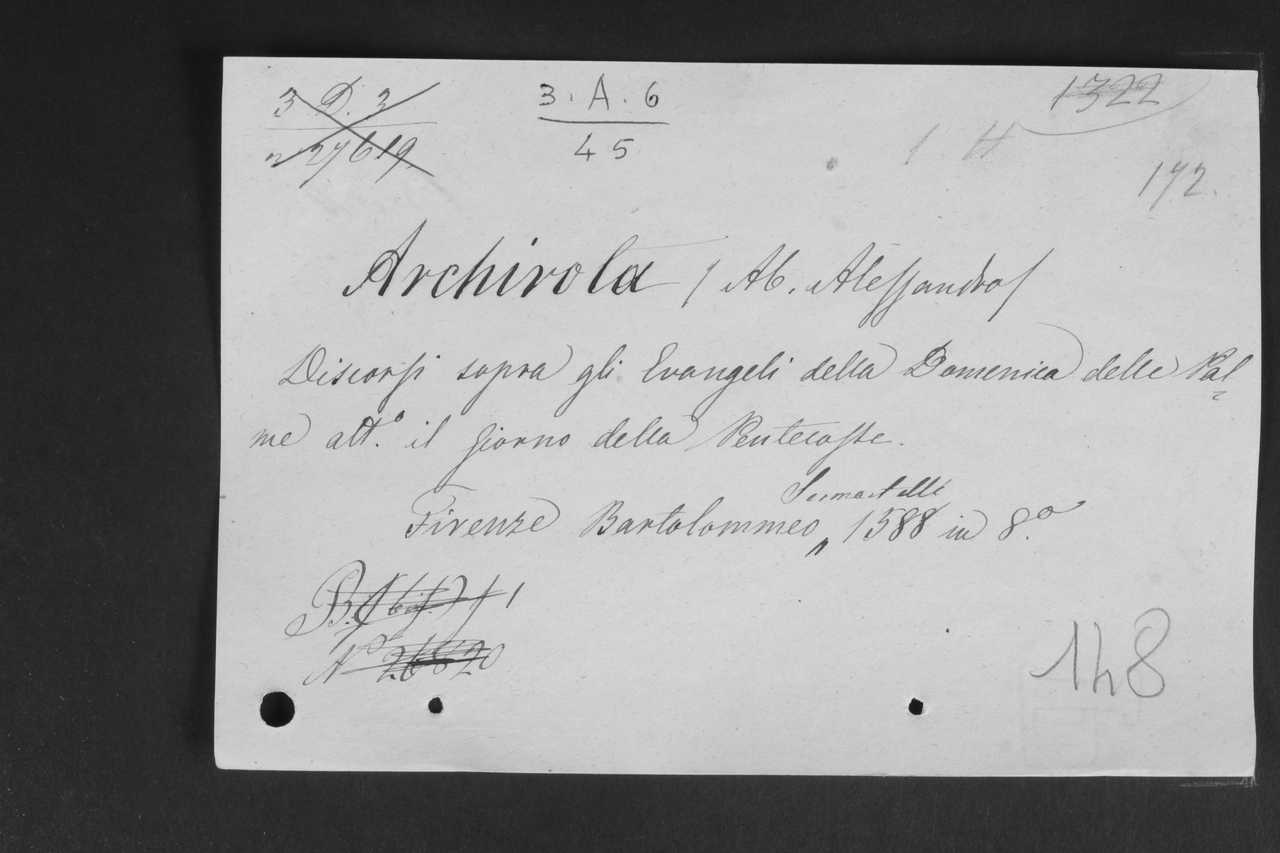 3 D. 3 3. A. 6 1322
2 27619 45 1 H
172.
Archirota / Ab. Alessandro/
Discorsi sopra gli Evangeli della Domenica delle Pal=
me att.º il giorno della Pentecoste.
Sermartelli
Firenze Bartolommeo, 1588 in 8.º
1
Nº 26820
148